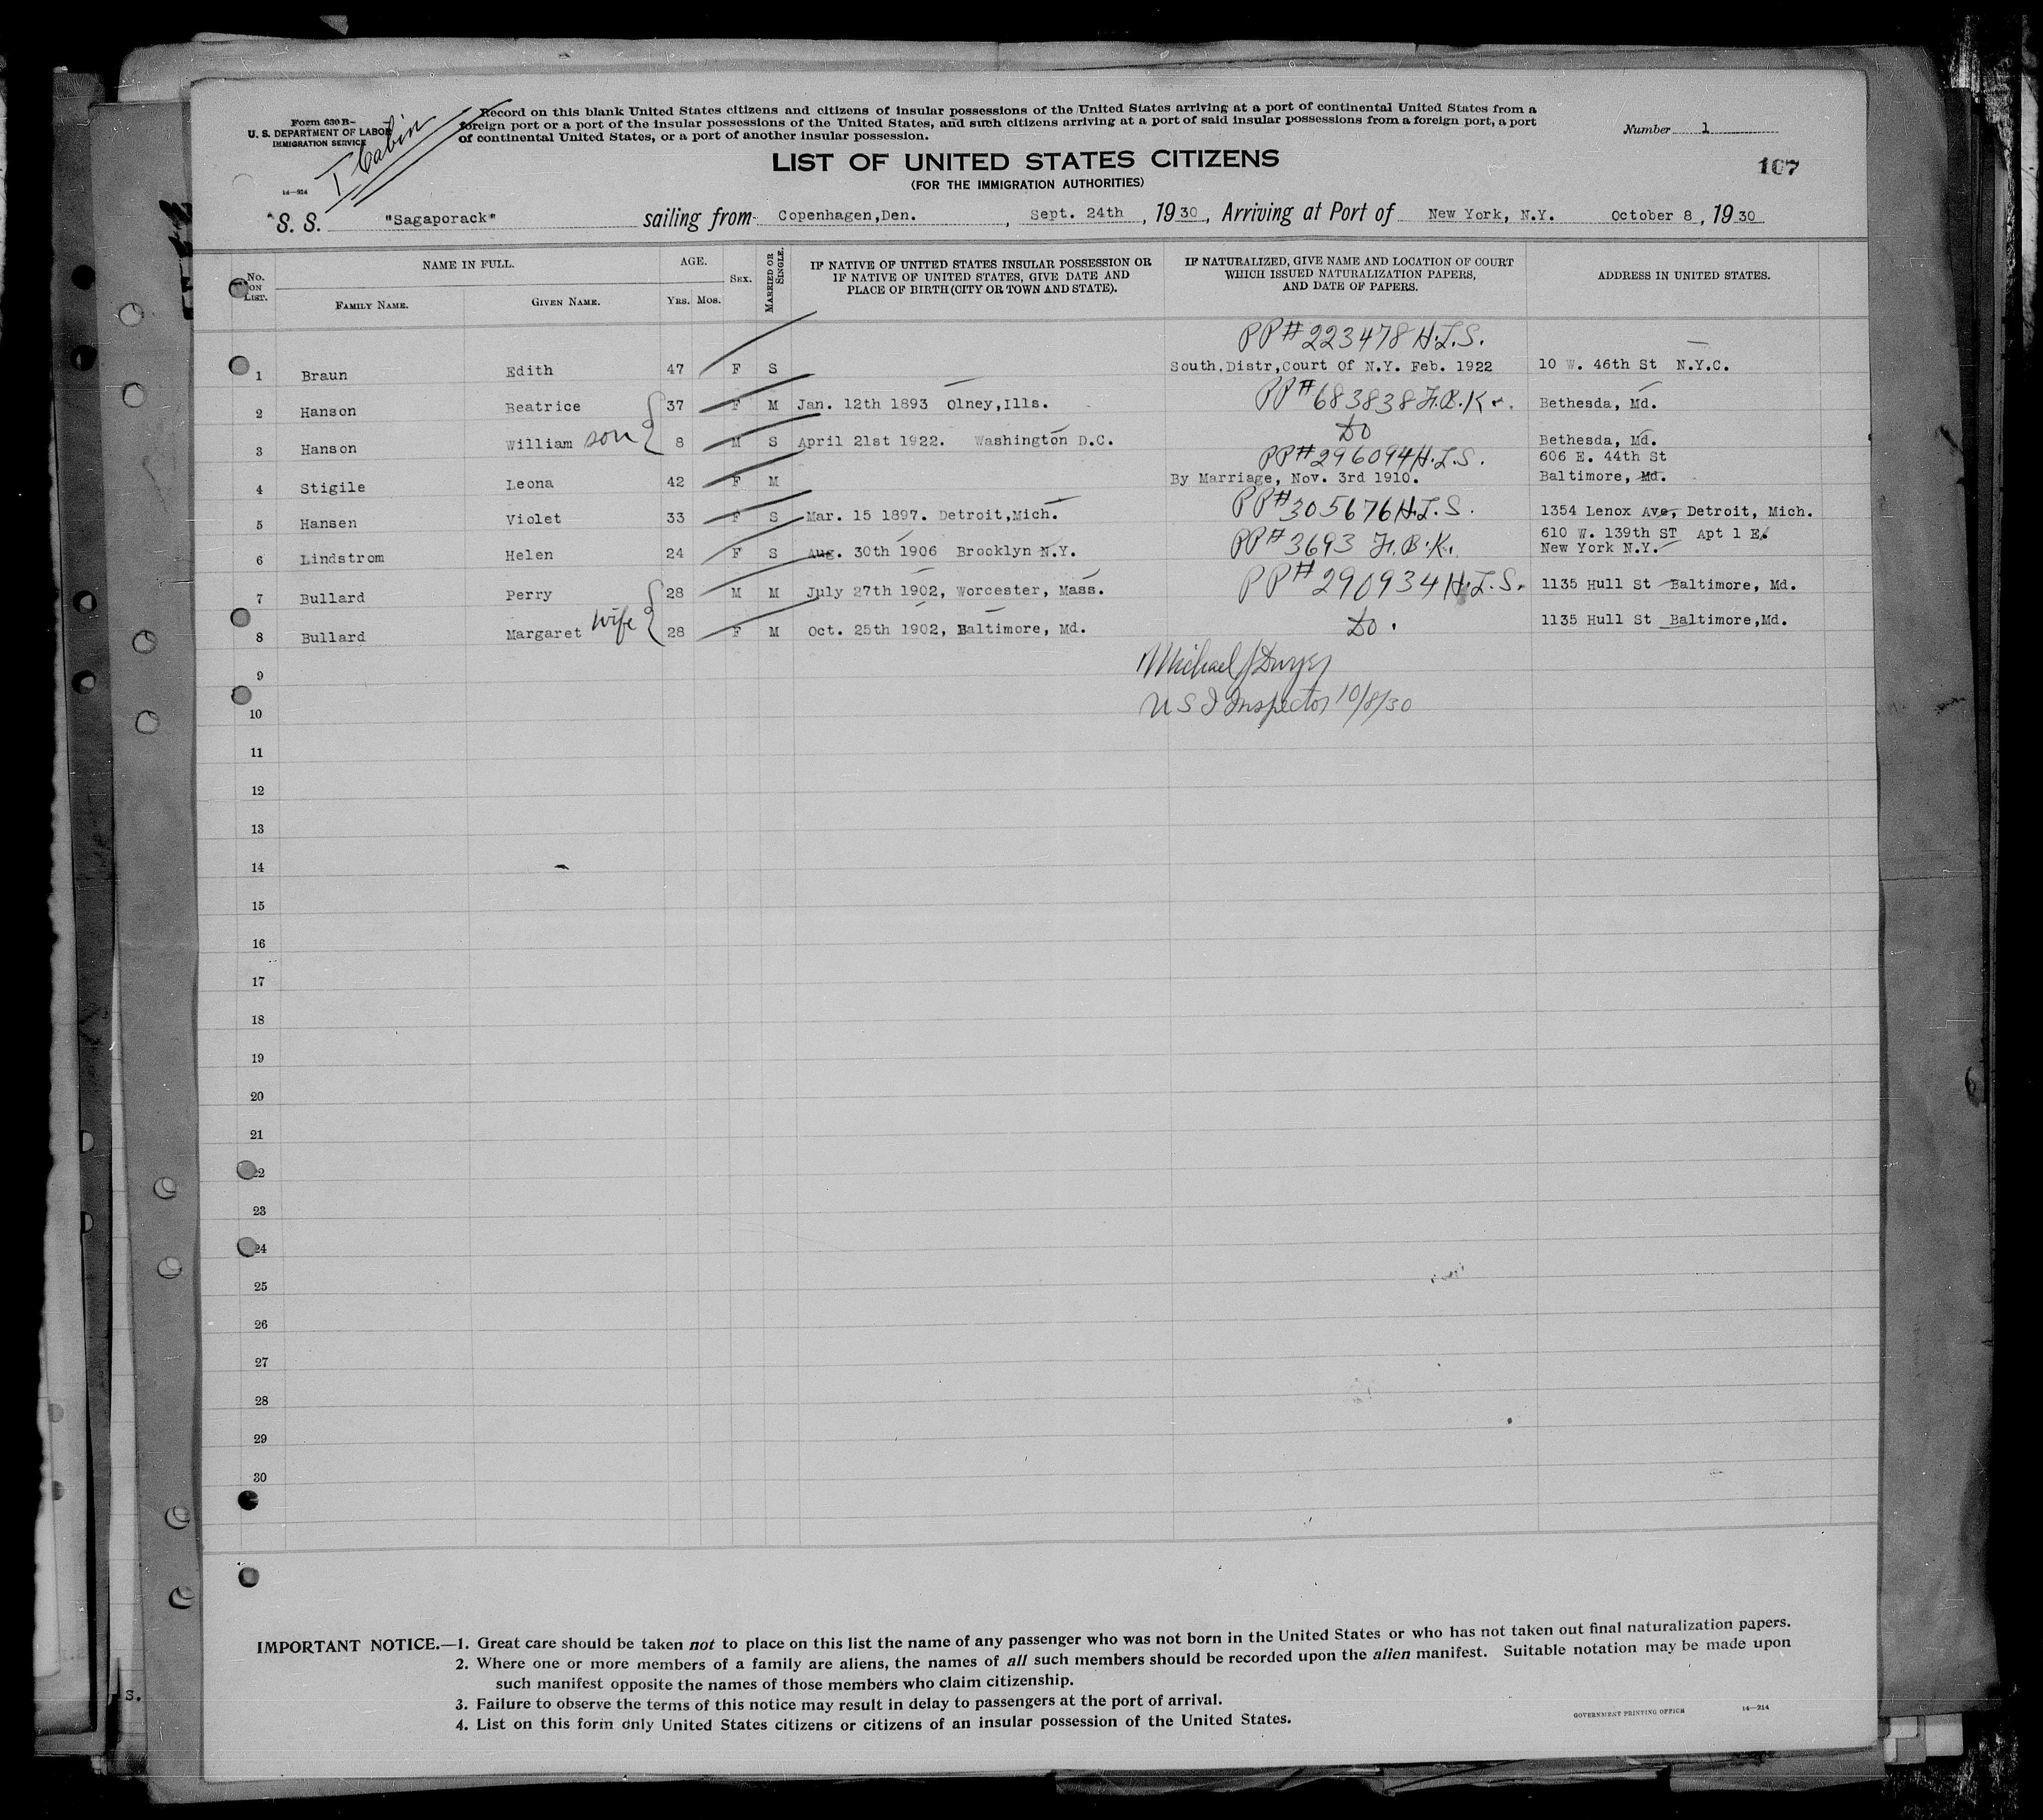 Form 630 B
U. S. DEPARTMENT OF LABOR
IMMIGRATION SERVICE
14—214
I Cabin
Record on this blank United States citizens and citizens of insular possessions of the United States arriving at a port of continental United States from a
foreign port or a port of the insular possessions of the United States, and such citizens arriving at a port of said insular possessions from a foreign port, a port
of continental United States, or a port of another insular possession.
Number 1
LIST OF UNITED STATES CITIZENS
(FOR THE IMMIGRATION AUTHORITIES)
107
S. S. "Sagaporack" sailing from Copenhagen,Den. , Sept. 24th , 1930, Arriving at Port of New York, N.Y. October 8 , 1930
No. ON LIST.
NAME IN FULL.
FAMILY NAME.
GIVEN NAME.
AGE.
YRS. MOS.
SEX.
MARRIED OR SINGLE.
IF NATIVE OF UNITED STATES INSULAR POSSESSION OR
IF NATIVE OF UNITED STATES, GIVE DATE AND
PLACE OF BIRTH (CITY OR TOWN AND STATE).
IF NATURALIZED, GIVE NAME AND LOCATION OF COURT
WHICH ISSUED NATURALIZATION PAPERS,
AND DATE OF PAPERS.
ADDRESS IN UNITED STATES.
PP# 223478 H.L.S.
1 Braun Edith 47 F S South.Distr,Court Of N.Y. Feb. 1922 10 W. 46th St N.Y.C.
2 Hanson Beatrice 37 F M Jan. 12th 1893 Olney,Ills. PP# 683838 F.B.K. Bethesda, Md.
3 Hanson William son 8 M S April 21st 1922. Washington D.C. Do Bethesda, Md.
PP# 296094 H.L.S. 606 E. 44th St
4 Stigile Leona 42 F M By Marriage, Nov. 3rd 1910. Baltimore, Md.
5 Hansen Violet 33 F S Mar. 15 1897. Detroit,Mich. PP# 305676 H.L.S. 1354 Lenox Ave, Detroit, Mich.
610 W. 139th ST Apt 1 E.
6 Lindstrom Helen 24 F S Aug. 30th 1906 Brooklyn N.Y. PP# 3693 F.B.K. New York N.Y.
7 Bullard Perry 28 M M July 27th 1902, Worcester, Mass. PP# 290934 H.L.S. 1135 Hull St Baltimore, Md.
8 Bullard Margaret wife 28 F M Oct. 25th 1902, Baltimore, Md. Do. 1135 Hull St Baltimore,Md.
9 Michael J Dwyer
10 U S I Inspector 10/8/30
11
12
13
14
15
16
17
18
19
20
21
22
23
24
25
26
27
28
29
30
IMPORTANT NOTICE.—1. Great care should be taken not to place on this list the name of any passenger who was not born in the United States or who has not taken out final naturalization papers.
2. Where one or more members of a family are aliens, the names of all such members should be recorded upon the alien manifest. Suitable notation may be made upon
such manifest opposite the names of those members who claim citizenship.
3. Failure to observe the terms of this notice may result in delay to passengers at the port of arrival.
4. List on this form only United States citizens or citizens of an insular possession of the United States.
GOVERNMENT PRINTING OFFICE 14—214
s.